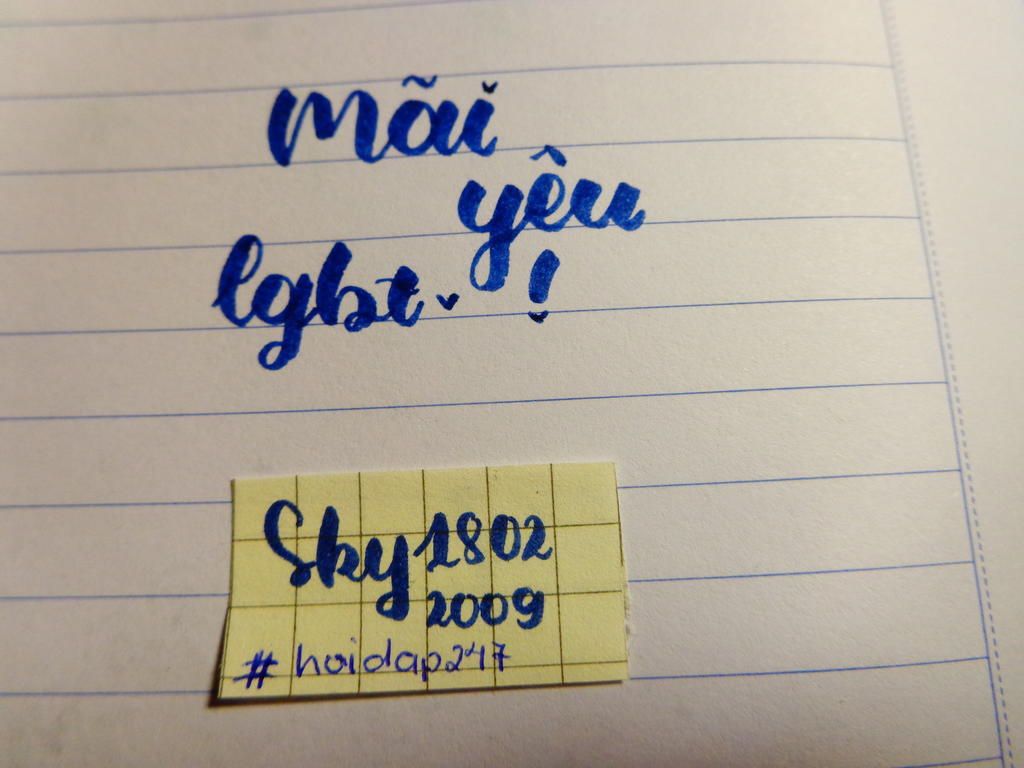 Mãi
yêu
lgbt. !
Sky 1802
2009
#hoidap247